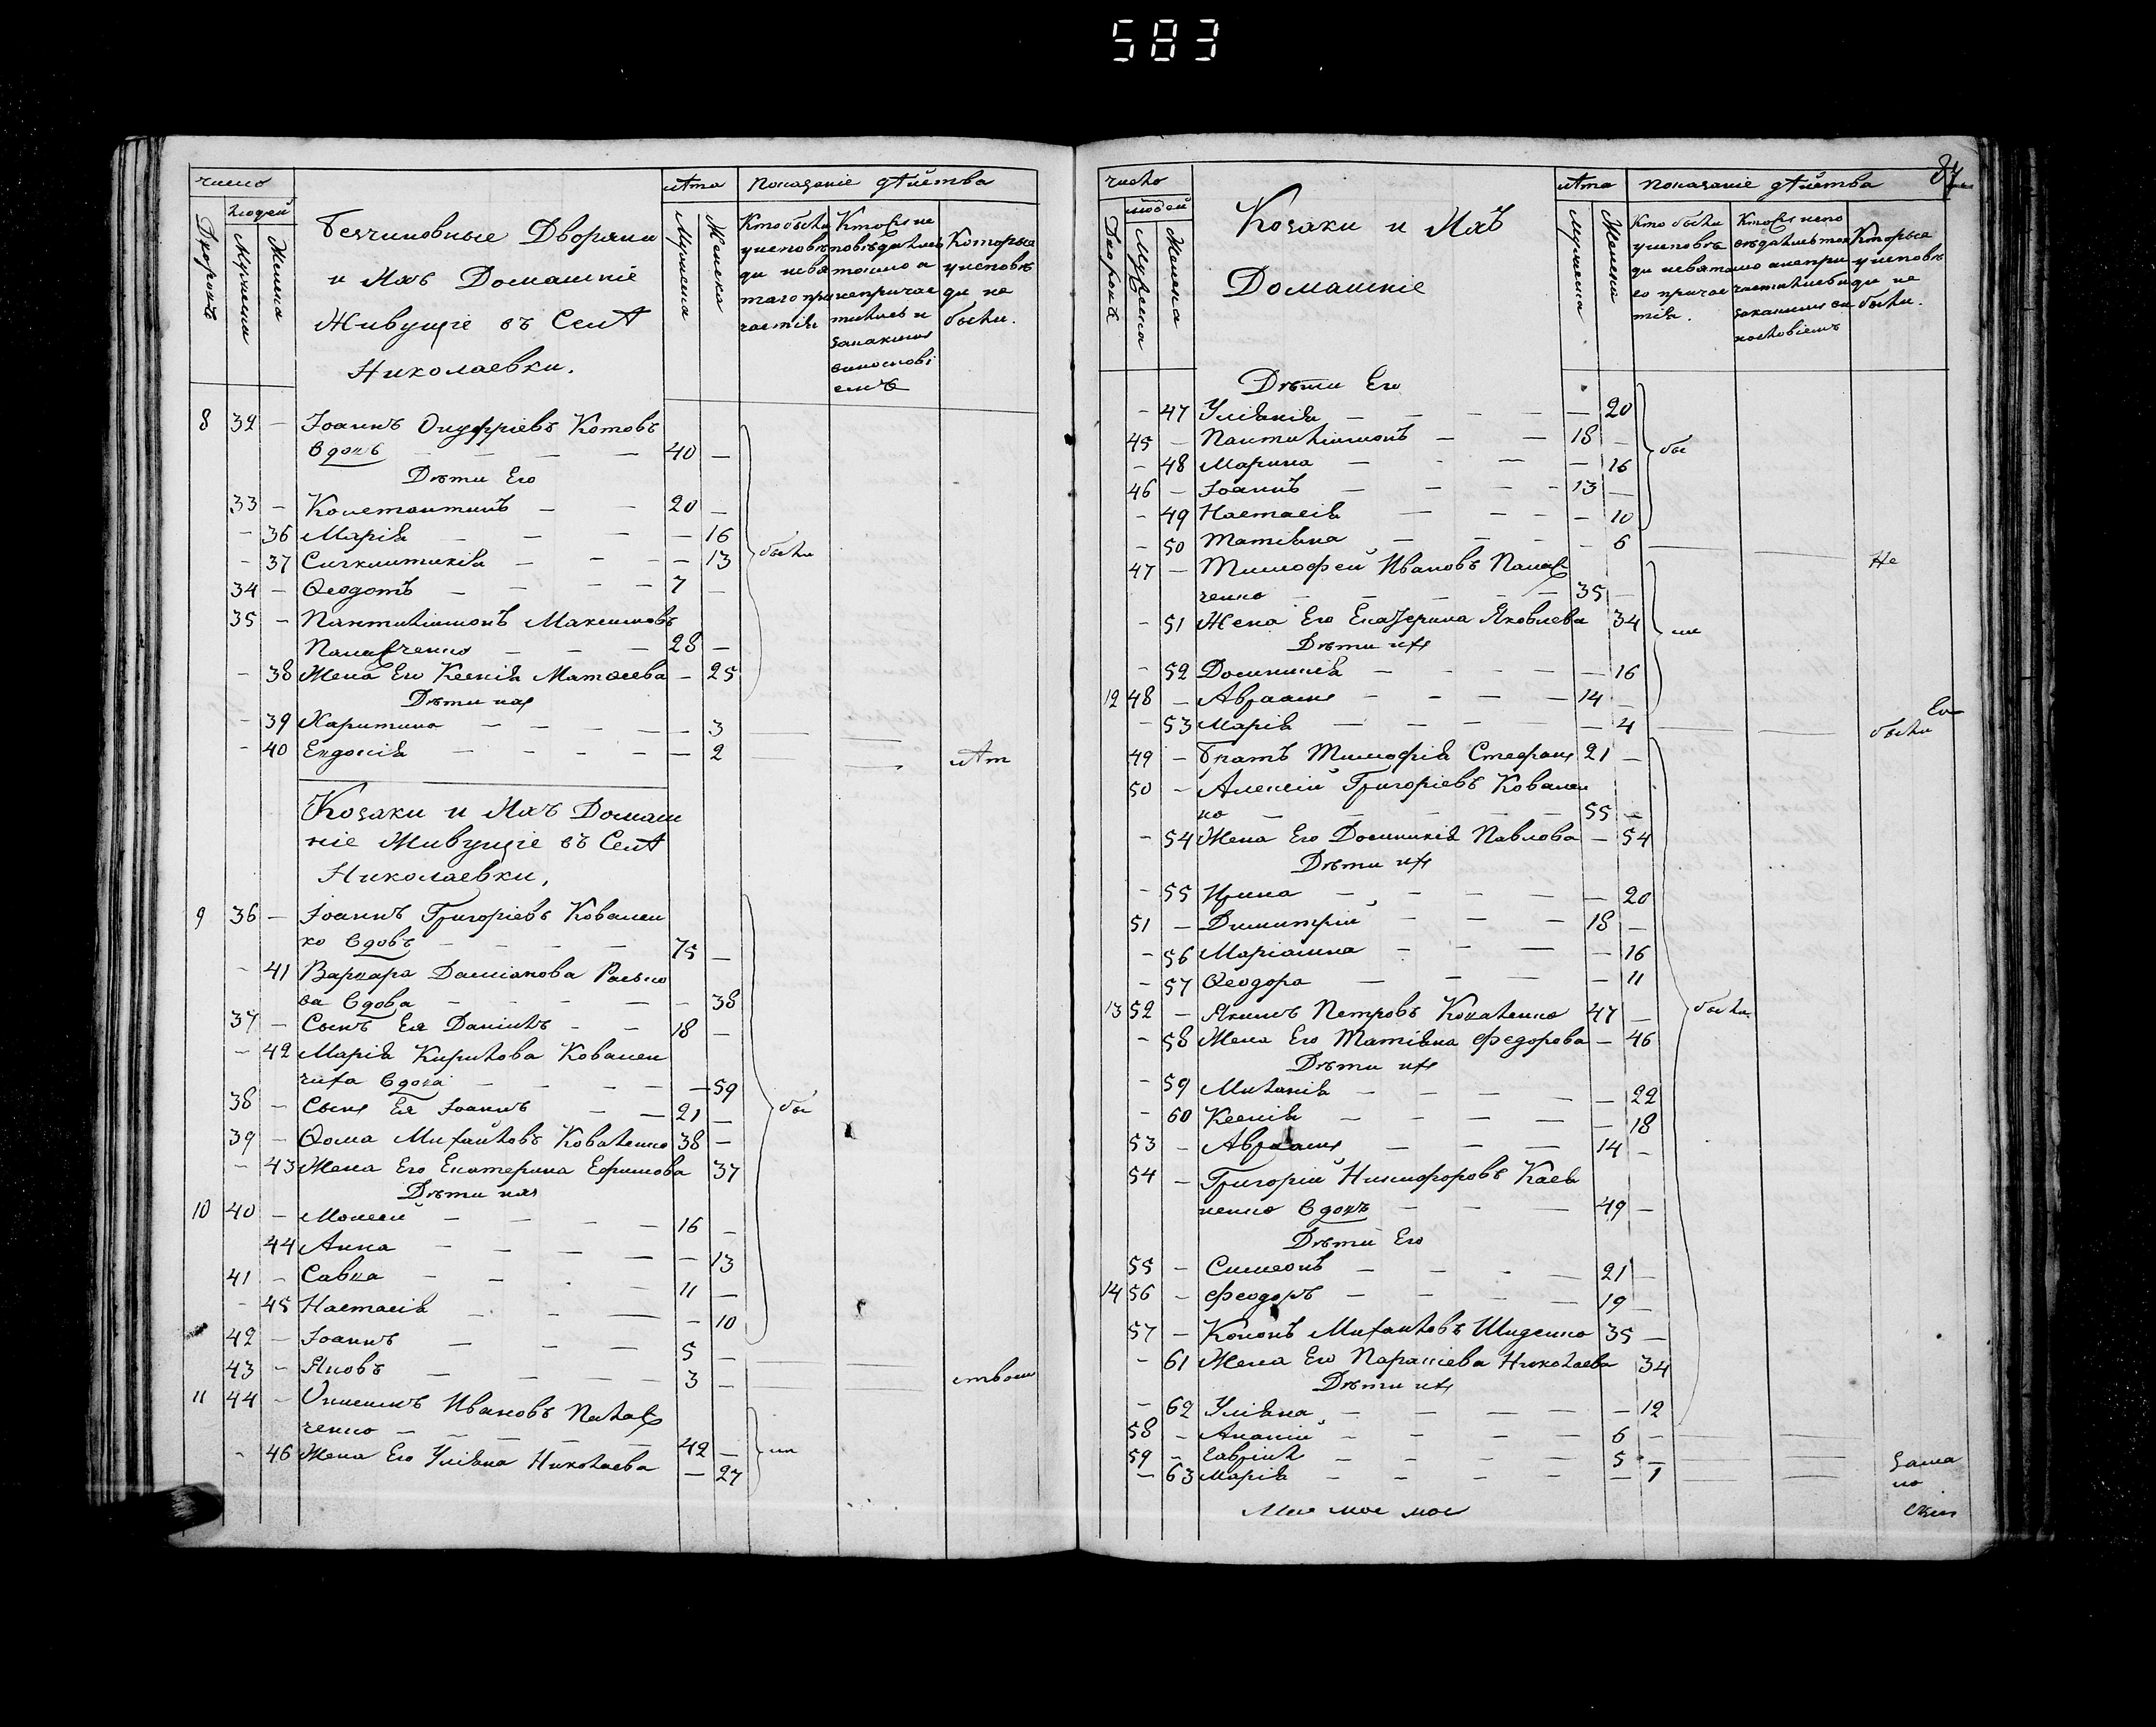 583
число
людей
Дворовъ
Мужеска
Женска
Безчиновные Дворяни
и Ихъ Домашніе
Живущіе въ Селѣ
Николаевки.
лѣта
Мужеска
Женска
Показаніе дѣйства
Кто были
у исповѣ
ди и свя
таго при
частія
Которые
у исповѣ
ди не
были.
8 32 — Іоаннъ Онуфріевъ Котовъ
вдовъ — — — — 40 —
Дѣти Его
33 — Константинъ — — 20 —
— 36 Марія — — — — 16
— 37 Синклитикія — — — — 13
34 — Ѳеодотъ — — — — 7 —
35 — Пантилимонъ Максимовъ
28 —
— 38 Жена Его Ксенія Матѳеева — 25
Дѣти ихъ
— 39 Харитина — — — — 3
— 40 Евдокія — — — — — 2
были
лѣт
Козаки и Ихъ Домаш
ніе Живущіе въ Селѣ
Николаевки,
9 36 — Іоаннъ Григоріевъ Ковален
ко вдовъ — — — — 75 —
— 41 Варвара Даміанова
ва вдова — — — — — 38
37 — Сынъ Ея Даніилъ — — 18 —
— 42 Марія Кирилова Ковален
чиха вдова — — — — — 59
38 — Сынъ Ея Іоаннъ — — 21 —
39 — Ѳома Михайловъ Коваленко 38 —
— 43 Жена Его Екатерина Ефимова 37
Дѣти ихъ
10 40 — Моисей — — — — 16 —
44 Анна — — — — — 13
41 — Савва — — — — 11 —
— 45 Настасія — — — — 10
42 — Іоаннъ — — — 5 —
43 — Яковъ — — — — 3 —
11 44 — Онисимъ Ивановъ
ченко — — — — — 42 —
— 46 Жена Его Уліяна Николаева — 27
бы
87
число
людей
Дворовъ
Мужеска
Женска
Козаки и Ихъ
Домашніе
лѣта
Мужеска
Женска
показаніе дѣйства
Кто были
у исповѣ
ди и свята
го причас
тія.
Которые
у исповѣ
ди не
были.
Дѣти Его
— 47 Уліянія — — — — — 20
45 — Пантилимонъ — — 18 —
— 48 Марина — — — — 16
46 — Іоаннъ — — — — 13 —
— 49 Настасія — — — — 10
— 50 Татіяна — — — — 6
бы
Не
47 — Тимофей Ивановъ
ченко — — — — — 35 —
— 51 Жена Его Екатерина Яковлева 34
Дѣти ихъ
— 52 Домникія — — — — — 16
12 48 — Авраамъ — — — — 14 —
— 53 Марія — — — — — 4
были
49 — Братъ Тимофія Стефанъ 21 —
50 — Алексій Григоріевъ Ковален
ко — — — — — 55 —
— 54 Жена Его Домникія Павлова — 54
Дѣти ихъ
— 55 Ирина — — — — — 20
51 — Димитрій — — — 18 —
— 56 Маріанна — — — — 16
— 57 Ѳеодора — — — — 11
13 52 — Якимъ Петровъ Коваленко 47 —
— 58 Жена Его Татіяна Федорова — 46
Дѣти ихъ
— 59 Миланія — — — — — 22
— 60 Ксенія — — — — 18
53 — Авраамъ — — — 14 —
54 — Григорій Никифоровъ
ненко вдовъ — — — 49 —
Дѣти Его
55 — Симеонъ — — — — 21 —
14 56 — Феодоръ — — — — 19 —
57 — Кононъ Михайловъ Шиденко 35 —
— 61 Жена Его Параскева Николаева 34
Дѣти ихъ
— 62 Уліяна — — — — — 12
58 — Ананій — — — — 6 —
59 — Гавріилъ — — — — 5 —
— 63 Марія — — — — — 1
были